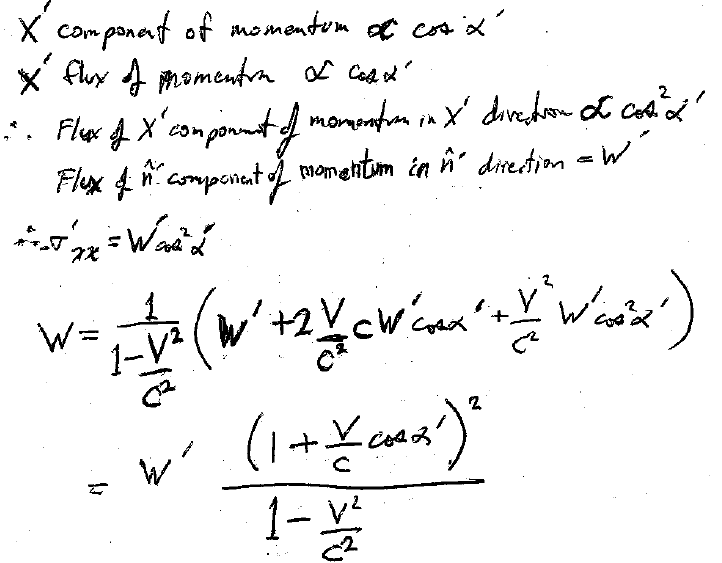 X′ component of momentum ∝ cos α′
X′ flux of momentum ∝ cos α′
∴ Flux of X′ component of momentum in X′ direction ∝ cos²α′
Flux of n̂′ component of momentum in n̂′ direction = W′
∴ -σ′xx = W′cos²α′
W = 1/(1-V²/c²) (W′ + 2 V/c² cW′cosα′ + V²/c² W′cos²α′)
= W′ (1 + V/c cosα′)² / (1 - V²/c²)